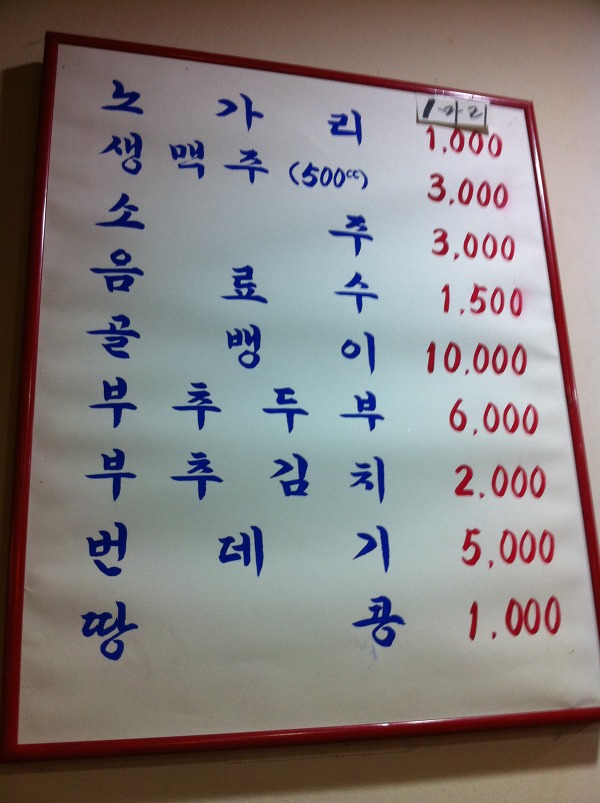 노가리 1,000
생맥주 (500cc) 3,000
소주 3,000
음료수 1,500
골뱅이 10,000
부추두부 6,000
부추김치 2,000
번데기 5,000
땅콩 1,000